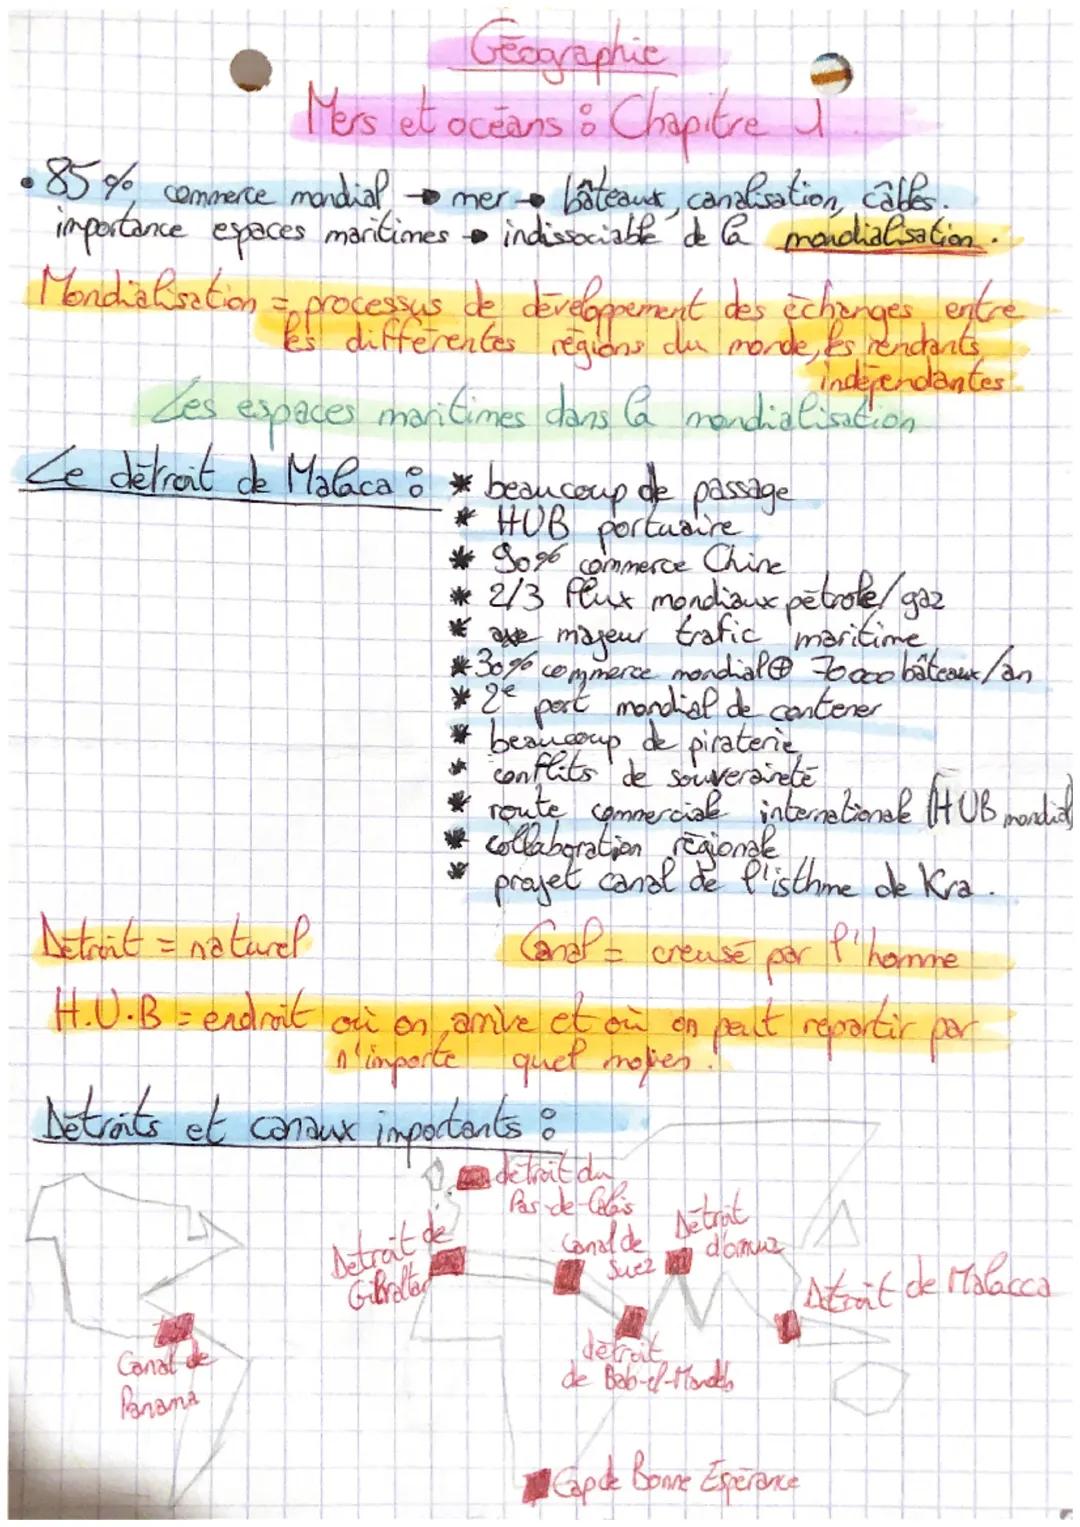 Géographie
Mers et océans : Chapitre 1.
• 85% commerce mondial → mer → bâteaux, canalisation, câbles.
importance espaces maritimes → indissociable de la mondialisation.
Mondialisation = processus de développement des échanges entre
les différentes régions du monde, les rendants
indépendantes.
Les espaces maritimes dans la mondialisation
Le détroit de Malaca : * beaucoup de passage
* HUB portuaire
* 90% commerce Chine
* 2/3 flux mondiaux pétrole/gaz
* axe majeur trafic maritime
* 30% commerce mondial ⊕ 70000 bâteaux/an
* 2e port mondial de contener
* beaucoup de piraterie
* conflits de souveraineté
* route commerciale internationale (HUB mondial)
* collaboration régionale
* projet canal de l'isthme de Kra.
Détroit = naturel
Canal = creusé par l'homme
H.U.B = endroit où on arrive et où on peut repartir par
n'importe quel moyen.
Détroits et canaux importants :
détroit du
Pas-de-Calais
Détroit de
Gibraltar
Canal de
Suez
Détroit
d'ormuz
Détroit de Malacca
détroit
de Bab-el-Mandeb
Canal de
Panama
Cap de Bonne Espérance